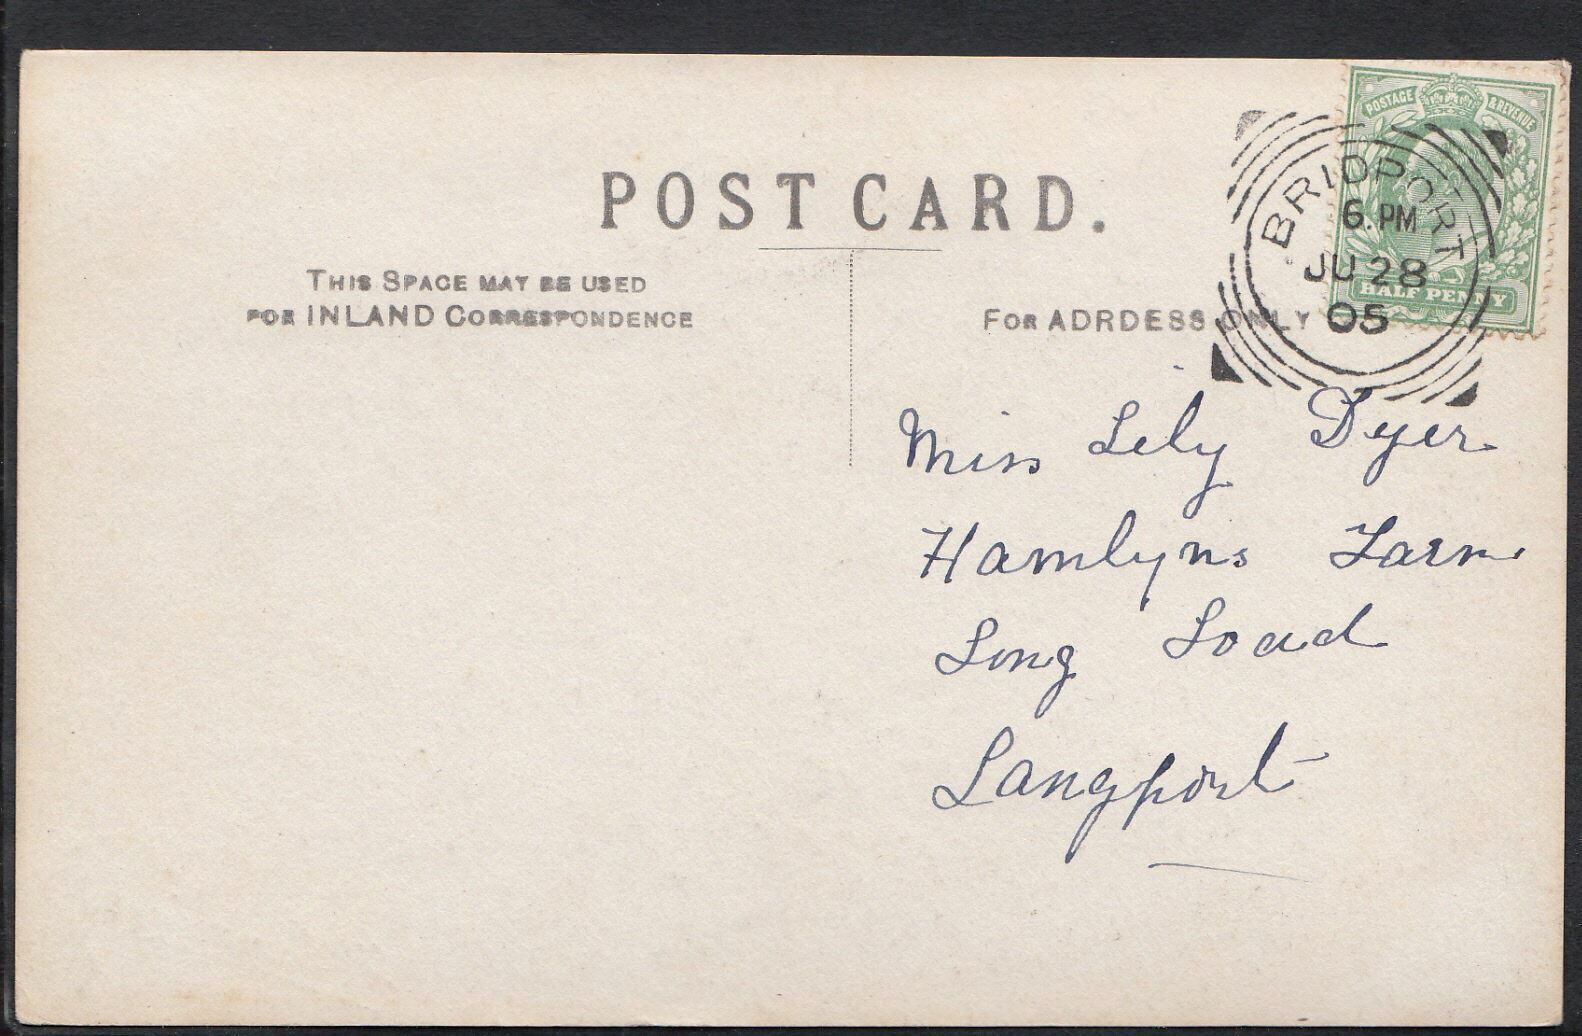 POSTAGE & REVENUE
POST CARD.
BRIDPORT
6. PM
JU 28
05
HALF PENNY
THIS SPACE MAY BE USED
FOR INLAND CORRESPONDENCE
FOR ADRDESS ONLY
Miss Lily Dyer
Hamlyns Farm
Long Load
Langport